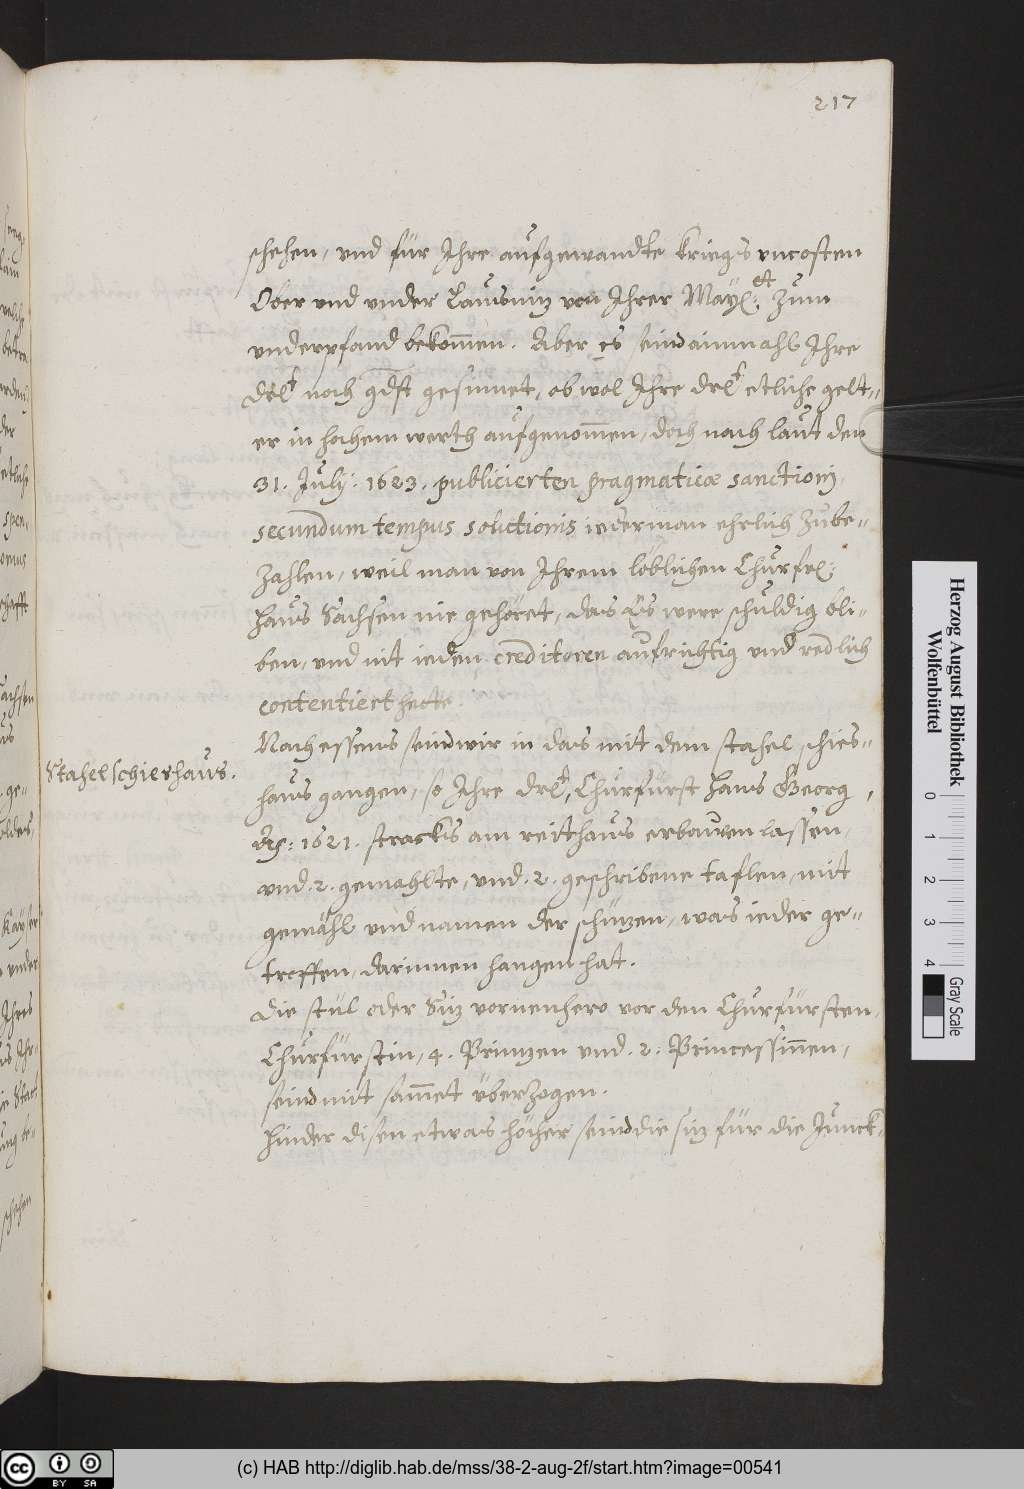 217
schehen, vnd für Ihre aufgewandte kriegs vncosten
Ober vnd vnder Lausniz von Ihrer Mayl: et zum
vnderpfand bekom̄en. Aber es seind ainmahl Ihre
drlt noch gdst gesinnet, ob wol Ihre drlt etliche gelt-
er in hohem werth aufgenom̄en, doch nach laut den
31. July: 1623. publicierten pragmaticæ sanctionj,
secundum tempus solutionis iederman ehrlich zube-
zahlen, weil man von Ihrem löblichen Churfrl:
Haus Sachsen nie gehöret, das Es were schuldig bli-
ben, vnd nit ieden creditoren aufrichtig vnd redlich
contentiert hette.
Stahelschieshaus.
Nach essens seind wir in das mit dem stahel schies-
haus gangen, so Ihre drlt, Churfürst Hans Georg,
Aō: 1621. stracks am reithaus erbauwen lassen,
vnd .2. gemahlte, vnd .2. geschribene taflen, mit
gemähl vnd namen der schüzen, was ieder ge-
troffen, darinnen hangen hat.
Die stül oder Siz vornenhero vor den Churfürsten,
Churfürstin, 4. Prinzen vnd .2. Princessin̄en,
seind mit sam̄et überzogen.
Hinder disen etwas höher seind die siz für die Junck-
Herzog August Bibliothek
Wolfenbüttel
0 1 2 3 4
Gray Scale
cc BY SA
(c) HAB http://diglib.hab.de/mss/38-2-aug-2f/start.htm?image=00541